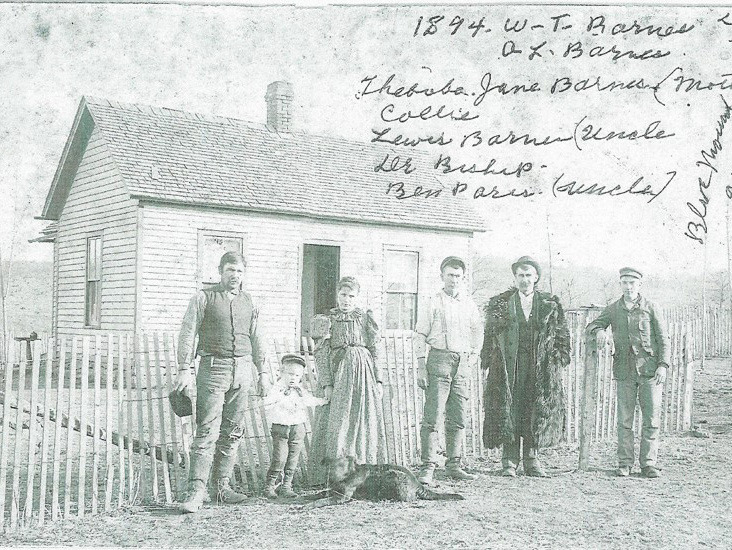 1894. W-T- Barnes
O L- Barnes.
Theboba. Jane Barnes (Mot
Collie
Lewis Barnes (Uncle
Dr Biship-
Ben Paris. (uncle)
Blue Mound